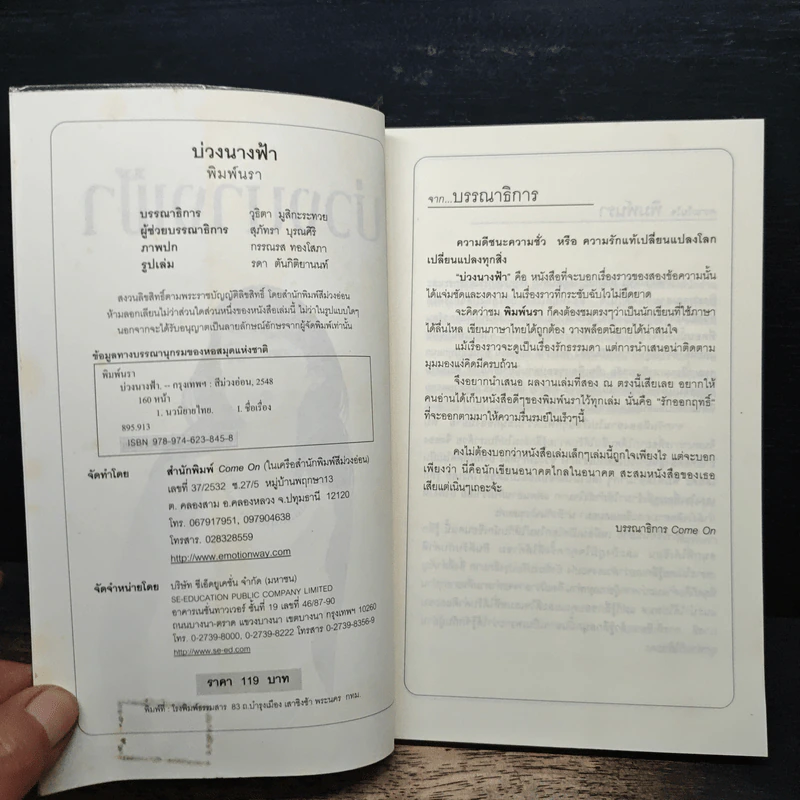 บ่วงนางฟ้า
พิมพ์นรา
บรรณาธิการ วุธิตา มูสิกะระทวย
ผู้ช่วยบรรณาธิการ สุภัทรา บุรณศิริ
ภาพปก กรรณรส ทองโสภา
รูปเล่ม รดา ตันกิติยานนท์
สงวนลิขสิทธิ์ตามพระราชบัญญัติลิขสิทธิ์ โดยสำนักพิมพ์สีม่วงอ่อน
ห้ามลอกเลียนไม่ว่าส่วนใดส่วนหนึ่งของหนังสือเล่มนี้ ไม่ว่าในรูปแบบใดๆ
นอกจากจะได้รับอนุญาตเป็นลายลักษณ์อักษรจากผู้จัดพิมพ์เท่านั้น
ข้อมูลทางบรรณานุกรมของหอสมุดแห่งชาติ
พิมพ์นรา
บ่วงนางฟ้า. -- กรุงเทพฯ : สีม่วงอ่อน, 2548
160 หน้า
1. นวนิยายไทย. I. ชื่อเรื่อง
895.913
ISBN 978-974-623-845-8
จัดทำโดย สำนักพิมพ์ Come On (ในเครือสำนักพิมพ์สีม่วงอ่อน)
เลขที่ 37/2532 ซ.27/5 หมู่บ้านพฤกษา13
ต. คลองสาม อ.คลองหลวง จ.ปทุมธานี 12120
โทร. 067917951, 097904638
โทรสาร. 028328559
http://www.emotionway.com
จัดจำหน่ายโดย บริษัท ซีเอ็ดยูเคชั่น จำกัด (มหาชน)
SE-EDUCATION PUBLIC COMPANY LIMITED
อาคารเนชั่นทาวเวอร์ ชั้นที่ 19 เลขที่ 46/87-90
ถนนบางนา-ตราด แขวงบางนา เขตบางนา กรุงเทพฯ 10260
โทร. 0-2739-8000, 0-2739-8222 โทรสาร 0-2739-8356-9
http://www.se-ed.com
ราคา 119 บาท
พิมพ์ที่ : โรงพิมพ์ธรรมสาร 83 ถ.บำรุงเมือง เสาชิงช้า พระนคร กทม.
จาก...บรรณาธิการ
ความดีชนะความชั่ว หรือ ความรักแท้เปลี่ยนแปลงโลก
เปลี่ยนแปลงทุกสิ่ง
“บ่วงนางฟ้า” คือ หนังสือที่จะบอกเรื่องราวของสองข้อความนั้น
ได้แจ่มชัดและงดงาม ในเรื่องราวที่กระชับฉับไวไม่ยืดยาด
จะคิดว่าชม พิมพ์นรา ก็คงต้องชมตรงๆว่าเป็นนักเขียนที่ใช้ภาษา
ได้ลื่นไหล เขียนภาษาไทยได้ถูกต้อง วางพล็อตนิยายได้น่าสนใจ
แม้เรื่องราวจะดูเป็นเรื่องรักธรรมดา แต่การนำเสนอน่าติดตาม
มุมมองแง่คิดมีครบถ้วน
จึงอยากนำเสนอ ผลงานเล่มที่สอง ณ ตรงนี้เสียเลย อยากให้
คนอ่านได้เก็บหนังสือดีๆของพิมพ์นราไว้ทุกเล่ม นั่นคือ “รักออกฤทธิ์”
ที่จะออกตามมาให้ความรื่นรมย์ในเร็วๆนี้
คงไม่ต้องบอกว่าหนังสือเล่มเล็กๆเล่มนี้ถูกใจเพียงไร แต่จะบอก
เพียงว่า นี่คือนักเขียนอนาคตไกลในอนาคต สะสมหนังสือของเธอ
เสียแต่เนิ่นๆเถอะจ้ะ
บรรณาธิการ Come On